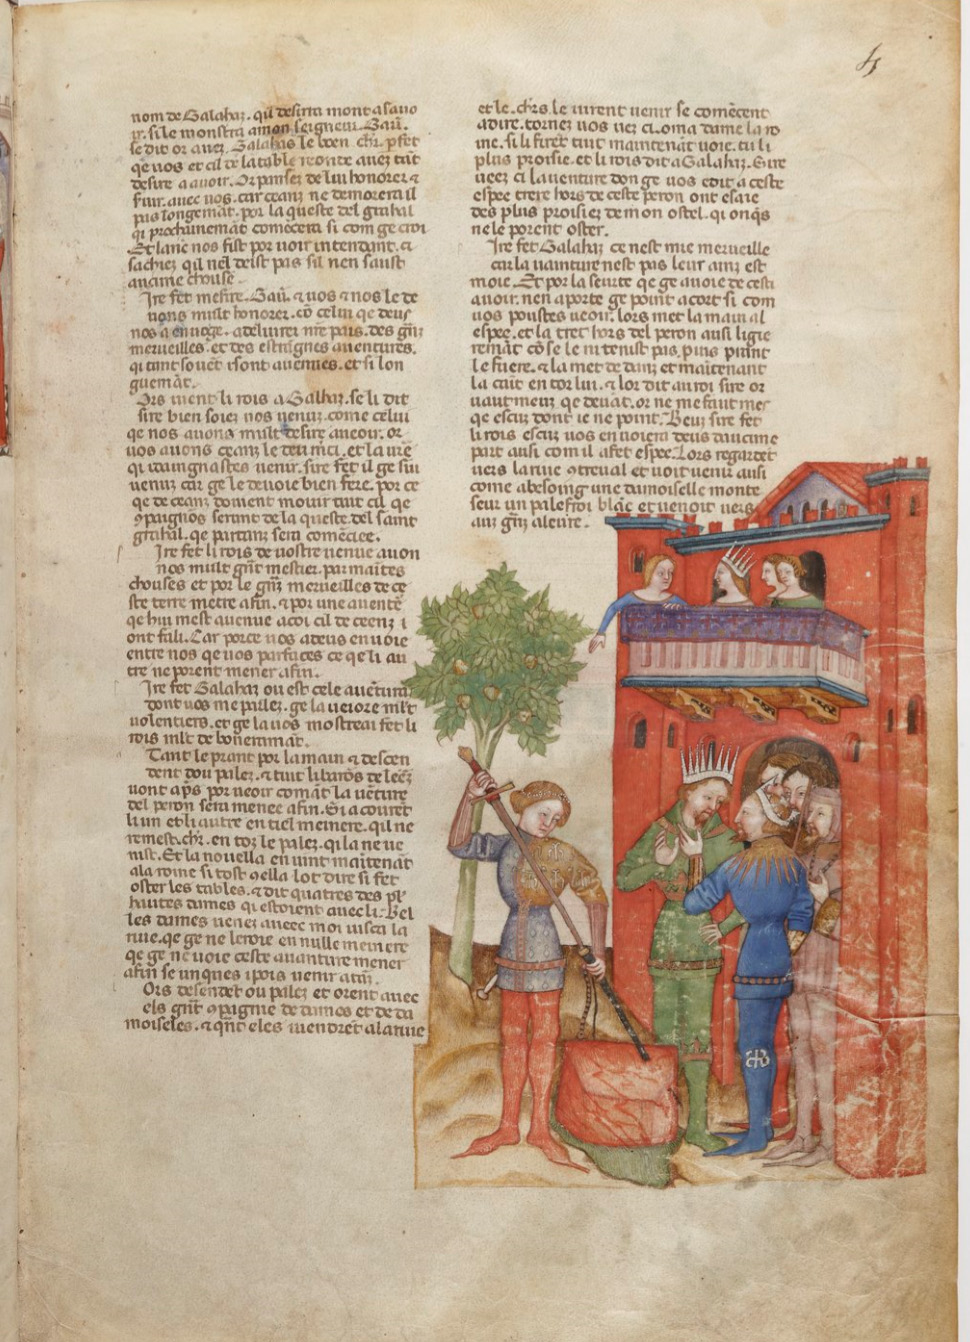 nom de Galahaz. qil desirra mont a sauo
ir. si le monstra a mon seigneur Gauu.
se dit or auez Galahas le boen chr. pfet
qe uos et cil de la table reonde auez tant
desire a auoir. Or pansez de lui honorer ⁊
seruir. auec uos. car ceanz ne demorera il
pas longemāt. por la queste del grahal
qi prochainemāt comēcera si com ge croi
Et lanc nos fist por uoir intendant. ⁊
sachiez qil nel deist pas sil nen saust
aucune chouse.
Ire fet mesire. Gau. ⁊ uos ⁊ nos le de
uons mult honorer. cō celui que deus
nos a enuoiez. a deliurer nr̄e païs. des gn̄z
merueilles. et des estrāgnes auentures.
qi tant souēt i sont auenues. et si lon
guemāt.
Ors uient li rois a Galhaz. se li dit
sire bien soiez uos uenuz. come celui
qe nos auons mult desire a ueoir. or
uos auons ceanz le deu m̄ci. et la ur̄e
qi daingnastes uenir. sire fet il ge sui
uenuz car ge le deuoie bien fere. por ce
qe de ceanz doiuent mouir tuit cil qe
9paignos seront de la queste. del saint
grahal. qe partanz sera comēciee.
Ire fet li rois de uostre uenue auon
nos mult grīt mestier. par maītes
chouses et por le grīz merueilles de ce
ste terre metre a fin. ⁊ por une auentē
qe hui mest auenue a coi cil de ceenz i
ont falli. Car por ce nos a deus enuoie
entre nos qe uos parfaces ce qe li au
tre ne porent mener a fin.
Ire fet Galahaz ou est cele auētura
dont uos me parlez. ge la ueiore ml't
uolentiers. et ge la uos mostrerai fet li
rois ml't de bonemāt.
Tant le prant por la main ⁊ descen
dent dou palez. ⁊ tuit li barōs de leēz
uont ap̄s por ueoir comāt la uēture
del peron sera menee a fin. Si acourēt
li un et li autre en tiel meinere. qil ne
remest. chr. en toz le palez. qi la ne ue
nist. Et la nouella en uint maītenāt
a la roine si tost 9 ella lot dire si fet
oster les tables. ⁊ dit quatres des pl'
hautes dames qi estoient auec li. Bel
les dames uenez aueec moi iusca la
riue. qe ge ne leroie en nulle meinere
qe ge ne uoie ceste auanture mener
a fin se unques i pois uenir a tāt.
Ors desendēt ou palez et orent auec
els grīt 9paignie de dames et de da
moiseles. ⁊ qn̄t eles uiendrēt a la riue
et le. chrs. le uirent uenir se comēcent
a dire. tornez uos uez ci. oma dame la ro
ine. si li firēt tuit maintenāt uoie. tu li
plus proisie. et li rois dit a Galahaz. Sire
ueez ci la uenture don ge uos edit a ceste
espee trere hors de ceste peron ont esaie
des plus proisiez de mon ostel. qi onqs
ne le porent oster.
Ire fet Galahaz ce nest mie merueille
car la uainture nest pas leur ainz est
moie. Et por la seurte qe ge auoie de cesti
auoir. nen aporte ge point acort si com
uos poustes ueoir. lors met la main al
espee. et la tret hors del peron ausi ligie
remāt cō se le ni tenist pas. puis printt
le fuere. ⁊ la met de danz et maintenant
la caīt en tor lui. ⁊ lor dit au roi sire or
uaut meuz qe deuāt. or ne me faut mer
qe escuz dont ie ne point. Beuz sire fet
li rois escuz uos enuoiera deus daucune
part ausi com il a fet espee. Lors regardēt
uers la riue 9treual et uoit uenir ausi
come a besoing une damoiselle monte
seur un palefroi blāc et uenoit uers
aus grīz aleure.